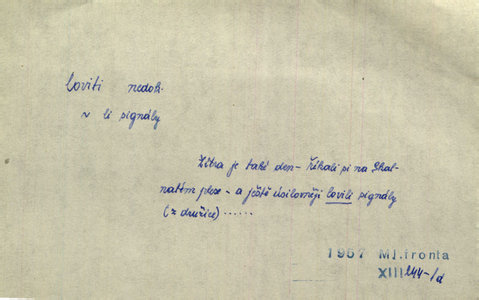 loviti nedok.
v li signály
Zítra je také den – říkali si na Skal-
natém plese – a ještě úsilovněji lovili signály
(z družice) ......
1957 Ml.fronta
XIII 244-/d